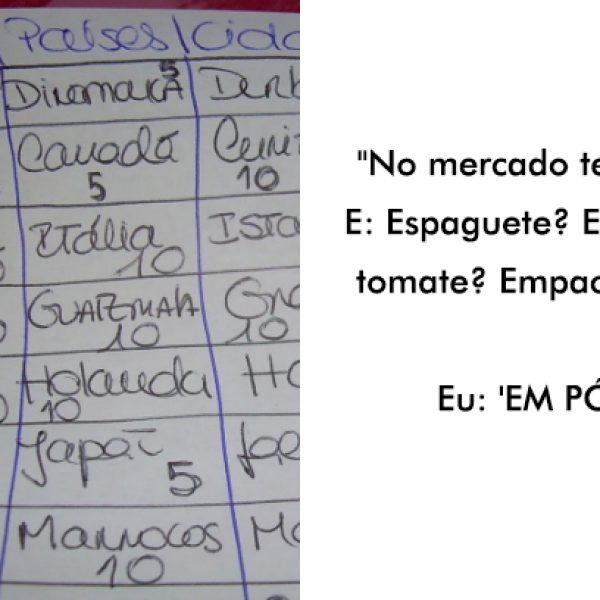 Países | Cida
Dinamarca 5 Den
Canadá 5 Curit 10
Itália 10 Ista
Guatemala 10 10
Holanda 10 Ho
Japão 5
Marrocos 10 Ma
"No mercado te
E: Espaguete? E
tomate? Empac
Eu: 'EM PÓ